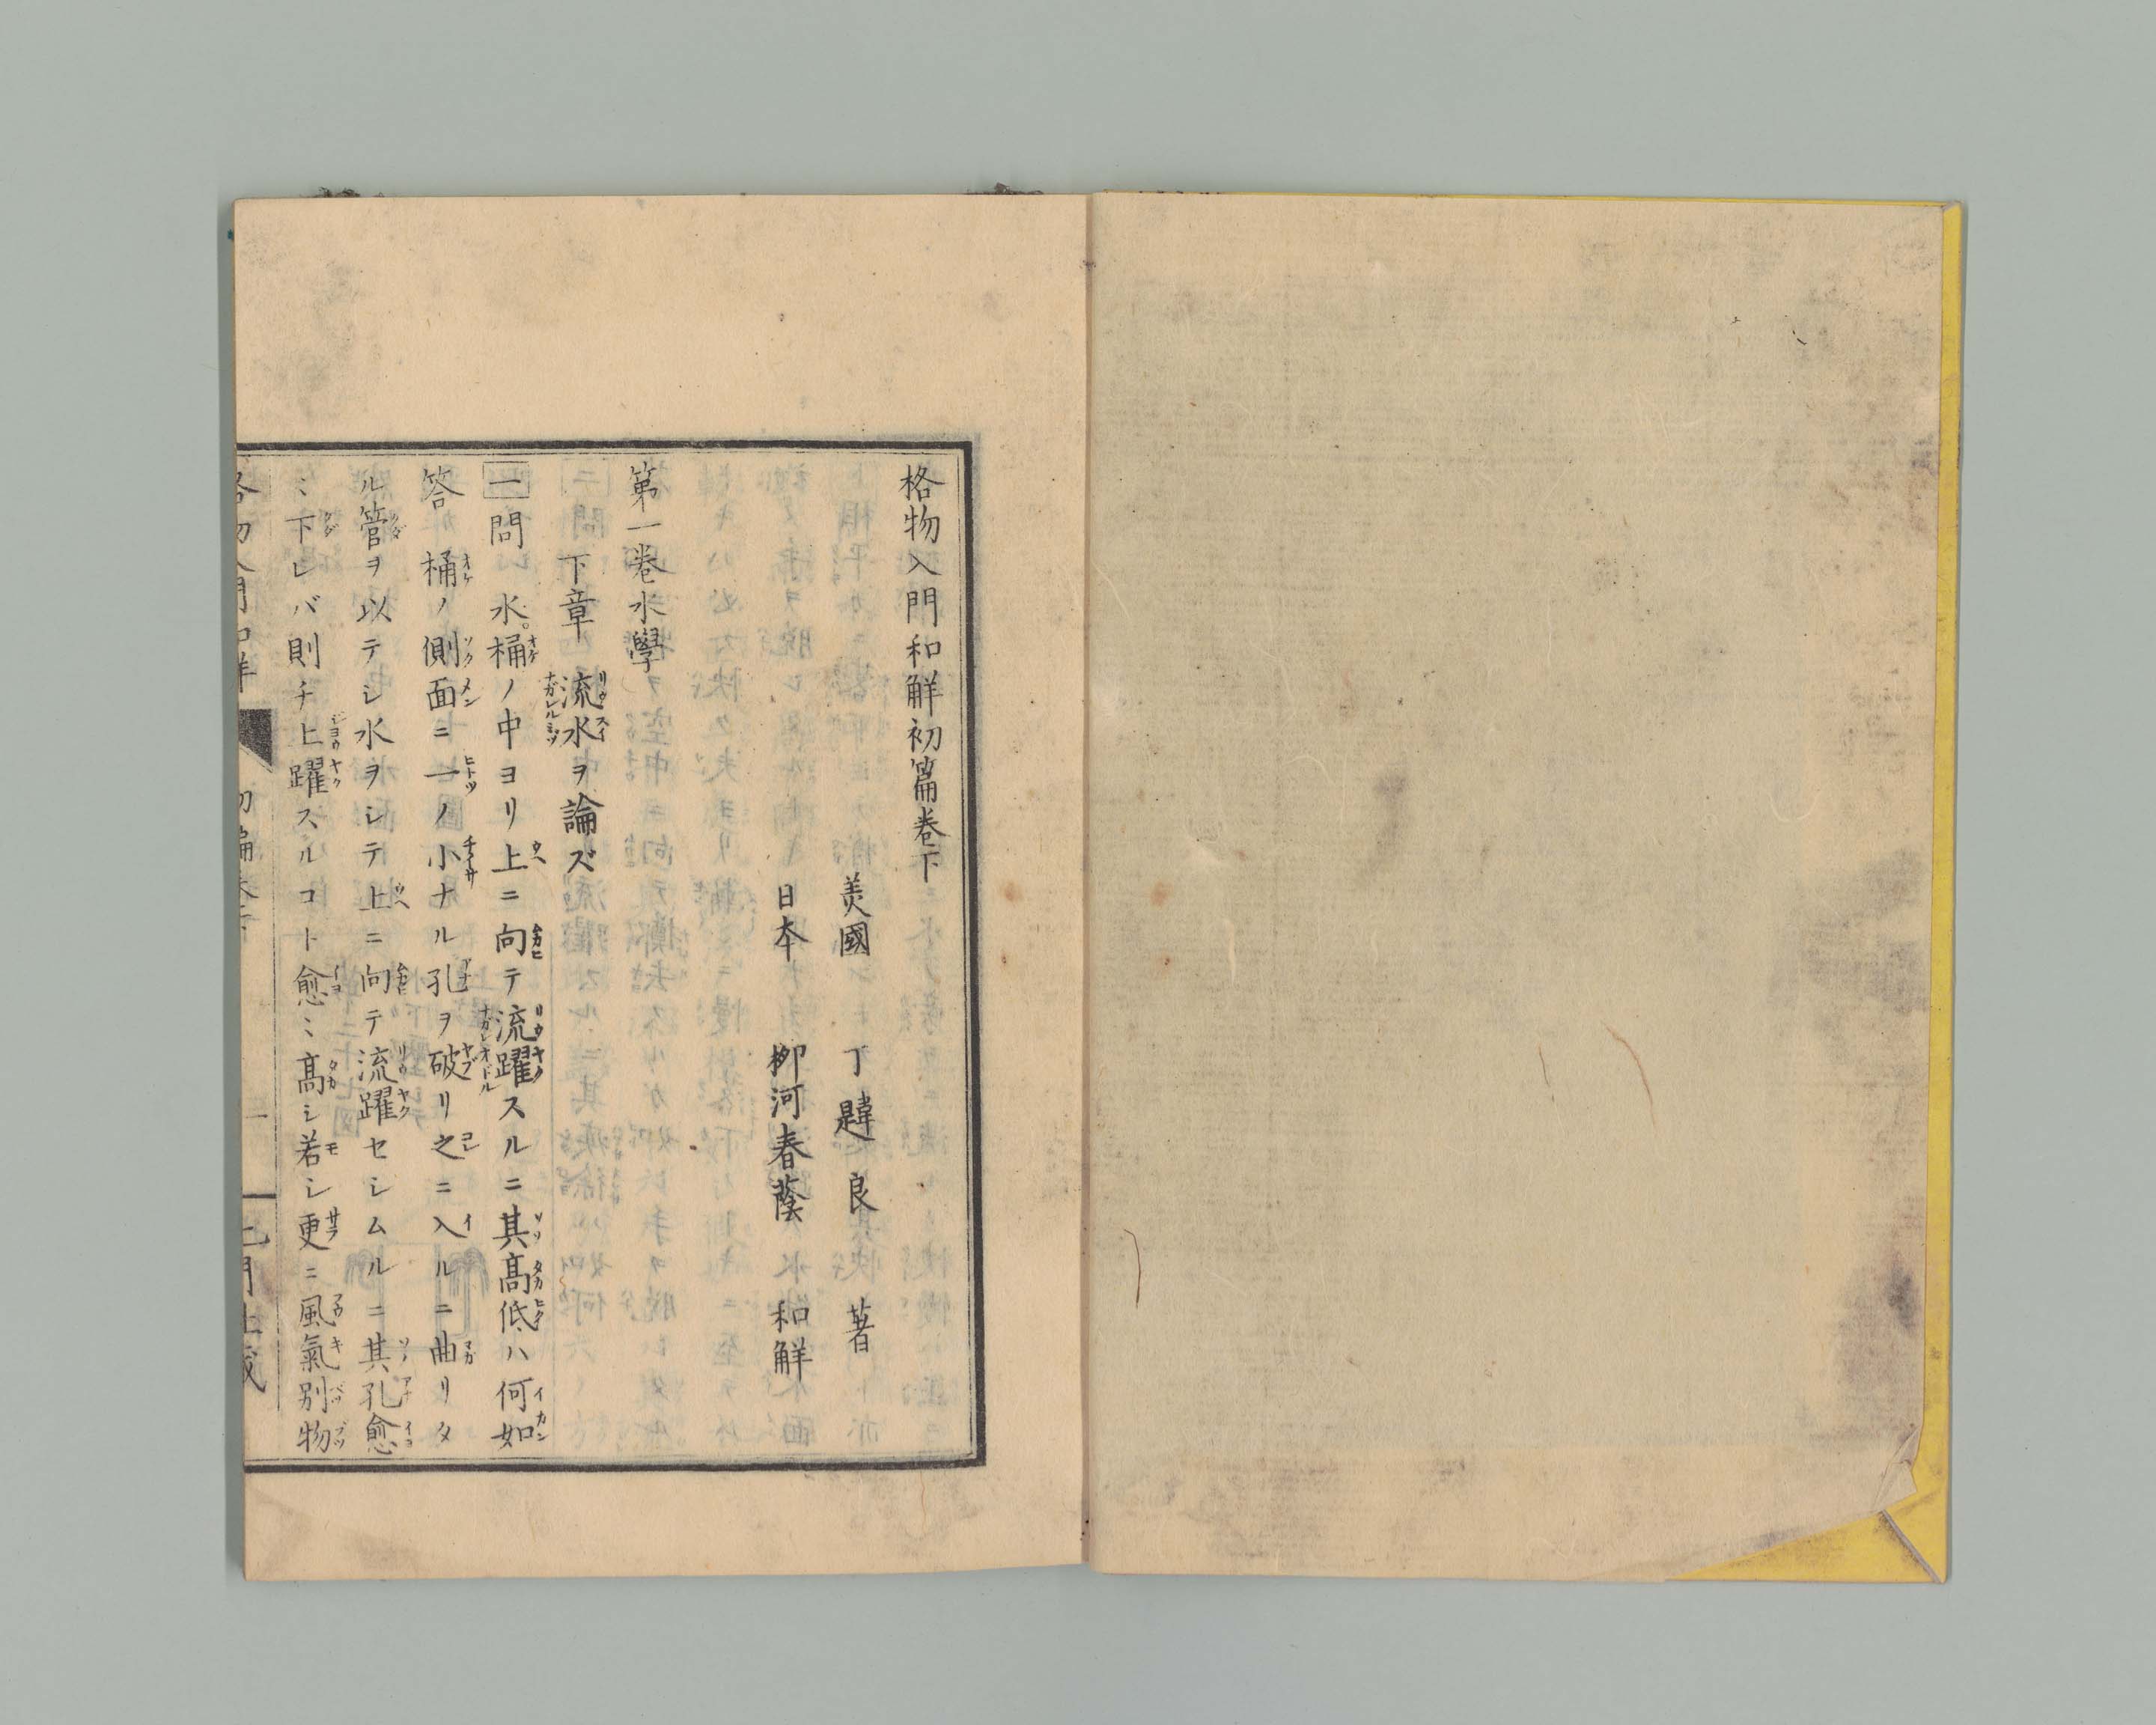 格物入門和解初篇巻下
美國 丁韙良 著
日本 栁河春蔭 和解
第一巻水學
下章 流水ヲ論ズ
一問 水桶ノ中ヨリ上ニ向テ流躍スルニ其髙低ハ何如
答 桶ノ側面ニ一ノ小ナル孔ヲ破リ之ニ入ルニ曲リタ
ル管ヲ以テシ水ヲシテ上ニ向テ流躍セシムルニ其孔愈
〻下レバ則チ上躍スルコト愈〻髙シ若シ更ニ風氣別物